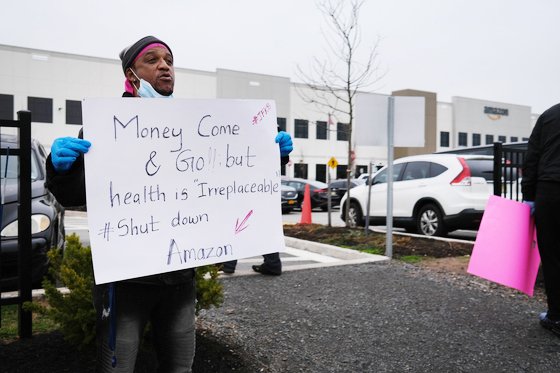 Money Come
& Go!! but
health is "Irreplaceable"
#Shut down
Amazon
amazon